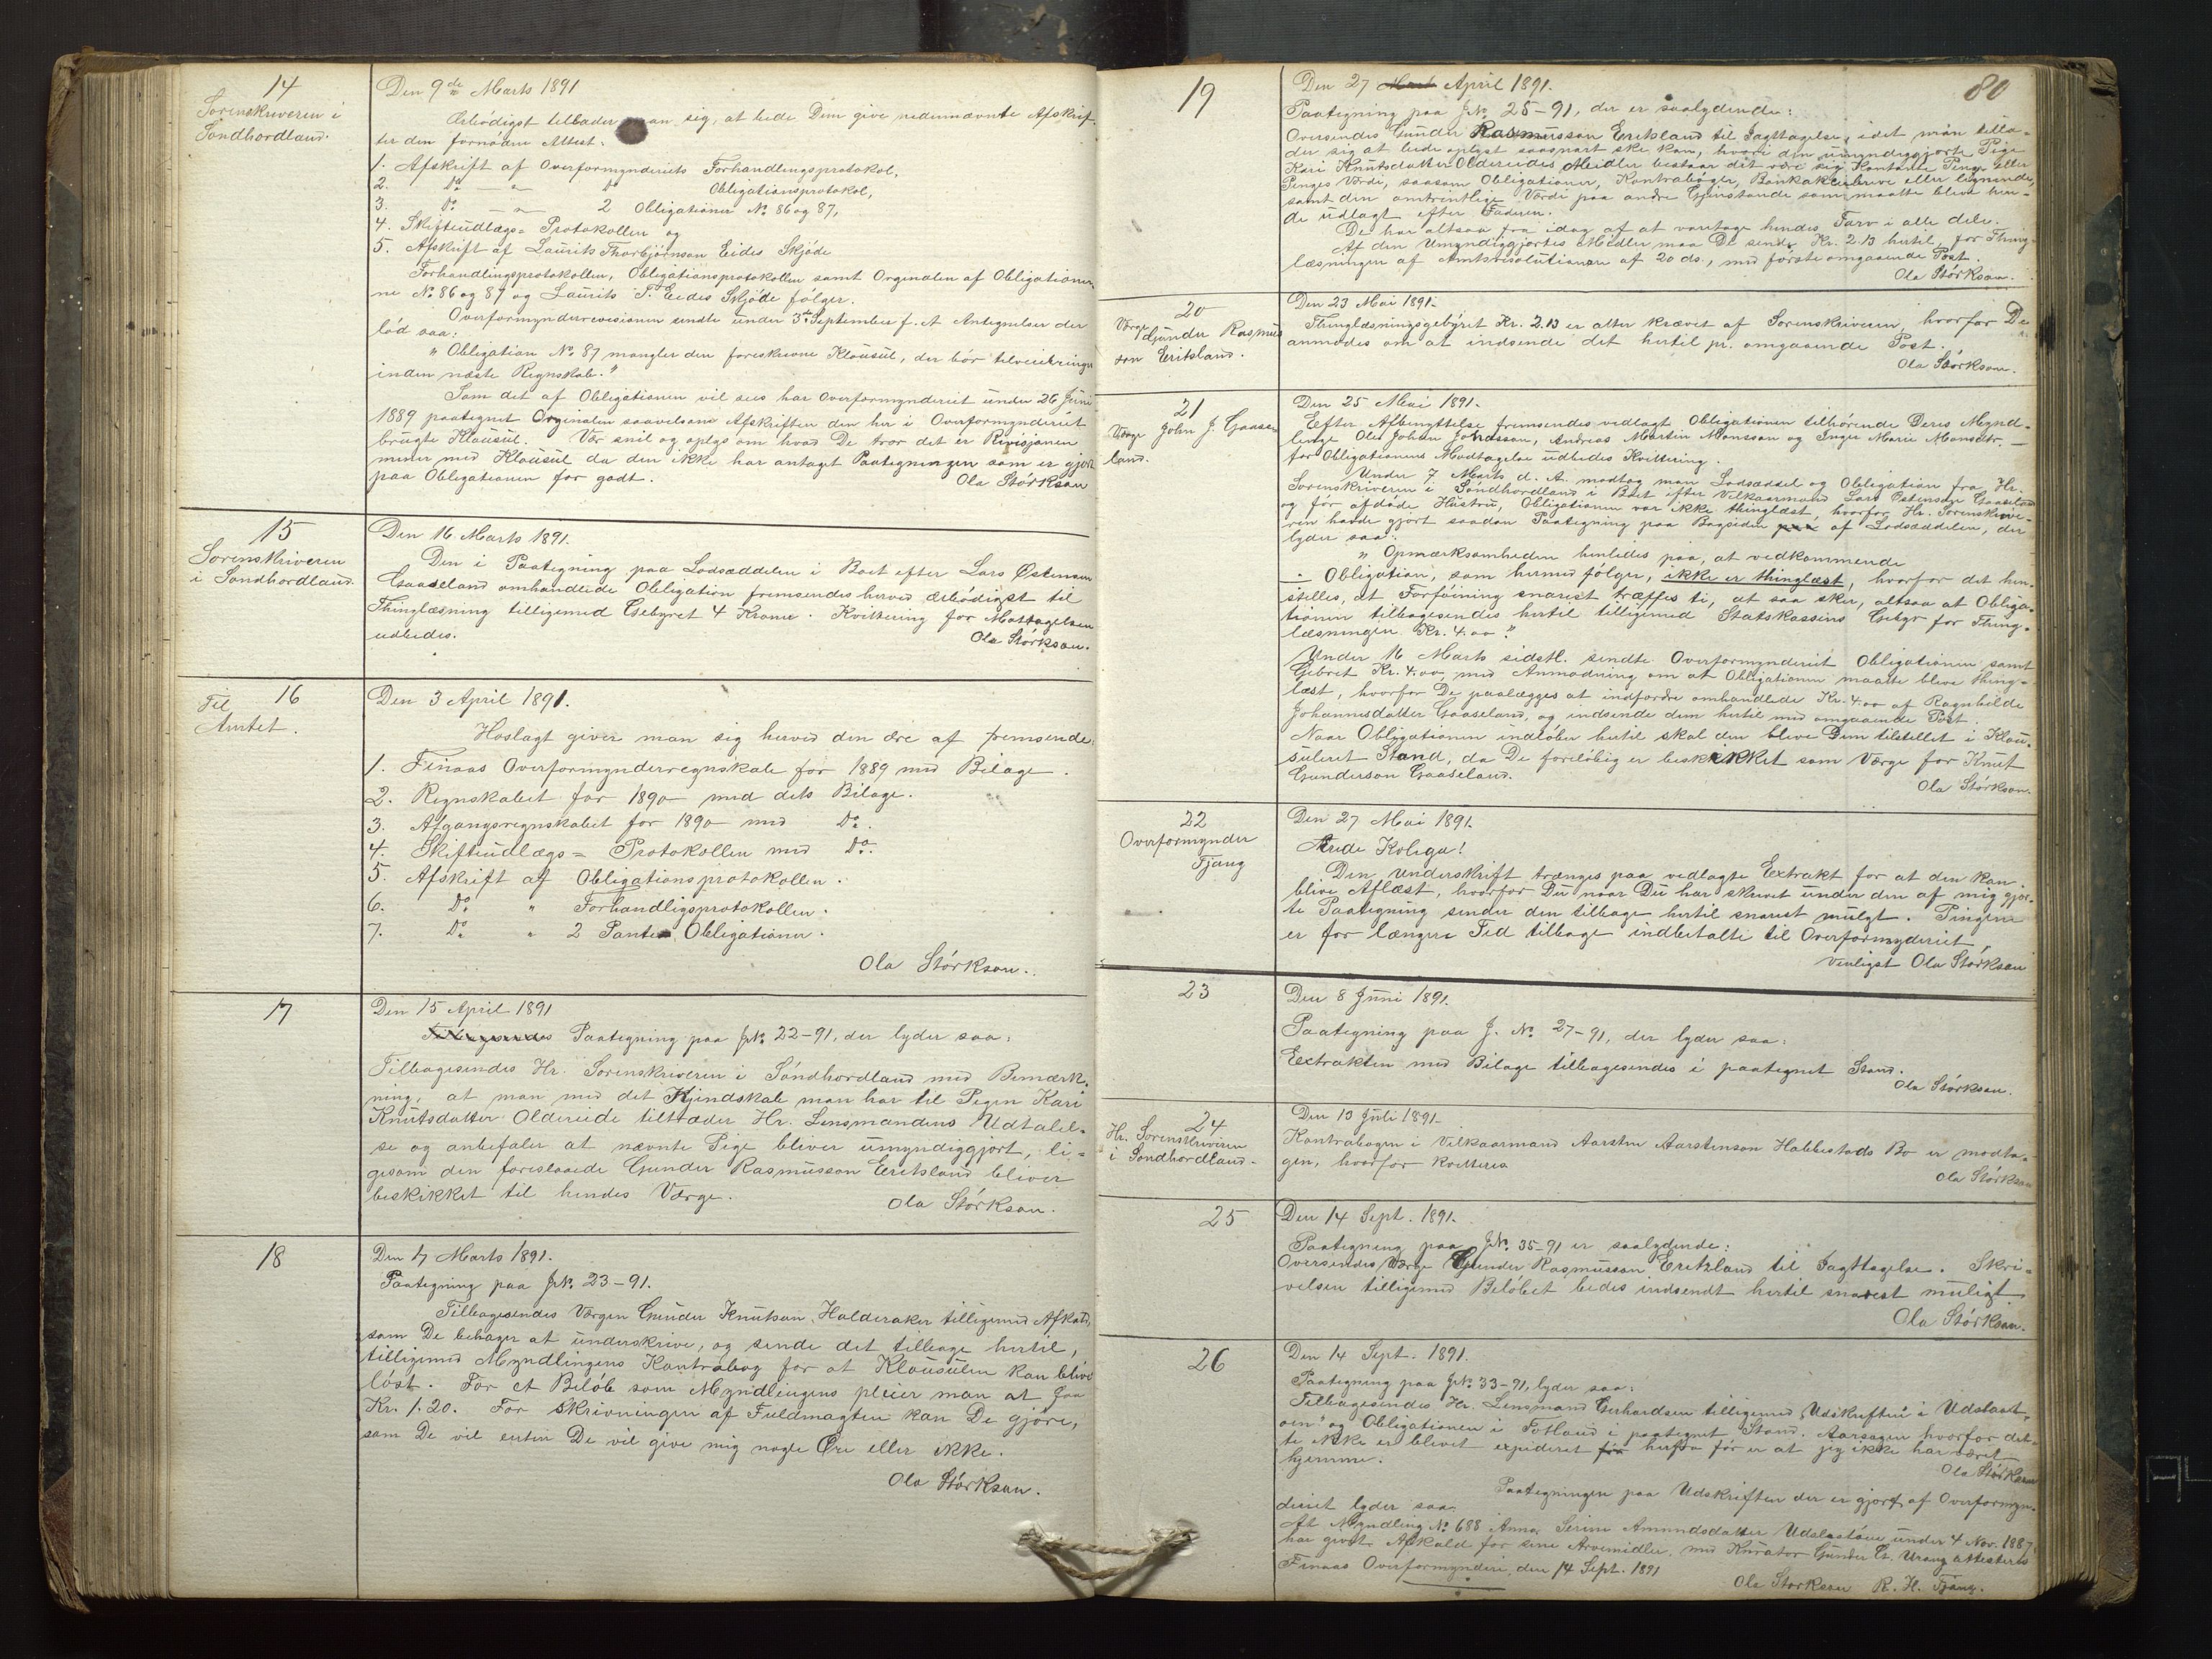 14
Sorenskriveren i
Söndhordland.
Den 9de Marts 1891
Ærbödigst tillader man sig, at bede Dem give nedennævnte Afskrif-
ter den fornödne Attest:
1. Afskrift af Overformynderiets Forhandlingsprotokol,
2. Do — " — Do Obligationsprotokol,
3. Do — " — 2 Obligationer No. 86 og 87,
4. Skifteudlægs= Protokollen og
5. Afskrift af Laurits Thorbjörnson Eides Skjöde
Forhandlingsprotokollen, Obligationsprotokollen samt Orginalen af Obligationer-
ne No. 86 og 87 og Laurits T. Eides Skjöde fölger.
Overformynderrevisionen sendte under 3die September f. A Antegnelser der
löd saa:
" Obligation No. 87 mangler den foreskrevne Klausul, der bör tilveiebringes
inden næste Regnskab."
Som det af Obligationen vil sees har Overformynderiet under 26 Juni
1889 paategnet Orginalen saavelsom Afskriften den her i Overformynderiet
brugte Klausul. Vær snil og oplys om hvad De tror det er Revisjonen
mener med Klausul da den ikke har antaget Paategningen som er gjort
paa Obligationen for godt.
Ola Störkson
15
Sorenskriveren
i Söndhordland.
Den 16 Marts 1891.
Den i Paategning paa Lodsæddelen i Boet efter Lars Østenson
Gaaseland omhandlede Obligation fremsendes herved ærbödigst til
Thinglæsning tilligemed Gebyret 4 Kroner. Kvittering for Mottagelsen
udbedes.
Ola Störkson.
16
Til
Amtet.
Den 3 April 1891.
Hoslagt giver man sig herved den ære af fremsende:
1. Finaas Overformynderregnskab for 1889 med Bilage.
2. Regnskabet for 1890 med dets Bilage.
3. Afgangsregnskabet for 1890 med Do.
4. Skifteudlægs= Protokollen med Do.
5. Afskrift af Obligationsprotokollen.
6. Do " Forhandligsprotokollen.
7. Do " 2 Pante Obligationer.
Ola Störkson.
17
Den 15 April 1891
Tilbagesendes Paategning paa JNo. 22-91, der lyder saa:
Tilbagesendes Hr. Sorenskriveren i Söndhordland med Bemærk-
ning, at man med det Kjendskab man har til Pigen Kari
Knutsdatter Oldereide tiltræder Hr. Lensmandens Udtalel-
se og anbefaler at nævnte Pige bliver umyndiggjort, li-
gesom den foreslaaede Gunder Rasmusson Eritsland bliver
beskikket til hendes Værge.
Ola Störkson.
18
Den 17 Marts 1891.
Paategning paa JNo. 23-91.
Tilbagesendes Værgen Gunder Knutson Halderaker tilligemed Afkald,
som De behager at underskrive, og sende det tilbage hertil,
tilligemed Myndlingens Kontrabog for at Klausulen kan blive
löst. For et Belöb som Myndlingens pleier man at faa
Kr. 1.20. For Skrivningen af Fuldmagten kan De gjöre,
som De vil enten De vil give mig nogle Öre eller ikke.
Ola Störkson.
80
19
Den 27 April 1891.
Paategning paa JNo. 25-91, der er saalydende:
Oversendes Gunder Rasmusson Eritsland til Iagttagelse, idet man tilla-
der sig at bede oplyst saasnart ske kan, hvori den umyndiggjorte Pige
Kari Knutsdatter Oldereides Midler bestaar det være sig Kontante Penge eller
Penges Værdi, saasom Obligationer, Kontraböger, Bankaktiebreve eller lignende,
samt den omtrentlige Værdi paa andre Gjenstande som maatte blive hen-
de udlagt efter Faderen.
De har altsaa fra idag af at varetage hendes Tarv i alle dele.
Af den Umyndiggjortes Midler maa De sende Kr. 2.13 hertil, for Thing-
læsningen af Amtsresolutionen af 20 ds., med förste omgaaende Post.
Ola Störkson.
20
Værge Gunder Rasmus
son Eritsland.
Den 23 Mai 1891.
Thinglæsningsgebyret Kr. 2.13 er atter krævet af Sorenskriveren, hvorfor De
anmodes om at indsende det hertil pr. omgaaende Post.
Ola Störkson.
21
Værge John J. Gaase
land.
Den 25 Mai 1891.
Efter Afbenyttelse fremsendes vedlagt Obligationen tilhörende Deres Mynd-
linge Ole Johan Johnsson, Andreas Martin Monsson og Inger Marie Monsdtr. —
for Obligationens Modtagelse udbedes Kvittering.
Under 7 Marts d. A. modtog man Lodsæddel og Obligation fra Hr.
Sorenskriveren i Söndhordland i Boet efter Vilkaarmand Lars Østenson Gaaseland
og för afdöde Hustru, Obligationen var ikke thinglæst, hvorfor Hr. Sorenskrive-
ren havde gjort saadan Paategning paa Bagsiden paa af Lodsæddelen, der
lyder saa:
" Opmærksomheden henledes paa, at vedkommende
— Obligation, som hermed fölger, ikke er thinglæst, hvorfor det hen-
stelles, at Forföining snarest træffes ti, at saa sker, altsaa at Obliga-
tionen tilbagesendes hertil tilligemed Statskassens Gebyr for Thing-
læsningen Kr. 4.00."
Under 16 Marts sidstl. sendte Overformynderiet Obligationen samt
Gebret Kr. 4.00, med Anmodning om at Obligationen maatte blive thing-
læst, hvorfor De paalægges at indfordre omhandlede Kr. 4.00 af Ragnhilde
Johannesdatter Gaaseland, og indsende dem hertil med omgaaende Post.
Naar Obligationen indlöber hertil skal den blive Dem tilstillet i Klau-
suleret Stand, da De foreløbig er beskikket som Værge for Knut
Gunderson Gaaseland.
Ola Störkson.
22
Overformynder
Tjang
Den 27 Mai 1891.
Ærede Kolega!
Din underskrift trænges paa vedlagte Extrakt for at den kan
blive Aflæst, hvorfor Du naar Du har skrevet under den af mig gjor-
te Paategning sender den tilbage hertil snarest mulgt. Pingene
er for længere Tid tilbage indbetalte til Overformyderiet.
Venligst Ola Störkson
23
Den 8 Juni 1891.
Paategning paa J. No. 27-91, der lyder saa:
Extrakten med Bilage tilbagesendes i paategnet Stand.
Ola Störkson.
24
Hr. Sorenskriveren
i Söndhordland.
Den 13 Juli 1891.
Kontrabogen i Vilkaarmand Aarsten Aarstenson Habbestads Bo er modta-
gen, hvorfor kvitteres
Ola Störkson
25
Den 14 Sept. 1891.
Paategning paa JNo. 35-91 er saalydende:
Oversendes Værge Gunder Rasmusson Eritzland til Iagttagelse. Skri-
velsen tilligemed Belöbet bedes indsendt hertil snarest muligt
Ola Störkson.
26
Den 14 Sept. 1891.
Paategning paa JNo. 33-91, lyder saa:
Tilbagesendes Hr. Lensmand Gerhardsen tilligemed "Udskriften i Udslaat-
öen" og Obligationen i Totland i paategnet Stand. Aarsagen hvorfor det-
te ikke er blivet expideret för herfra för er at jeg ikke har været
hjemme.
Ola Störkson
Paategningen paa Udskriften der er gjort af Overformyn-
deriet lyder saa.
At Myndling No. 688 Anna Serine Amundsdatter Udslaatöen under 4 Nov. 1887
har givet Afkald for sine Arvemidler, med Kurator Gunder G. Urang attesteres
Finaas Overformynderi, den 14 Sept. 1891
Ola Störkson R. H. Tjang.